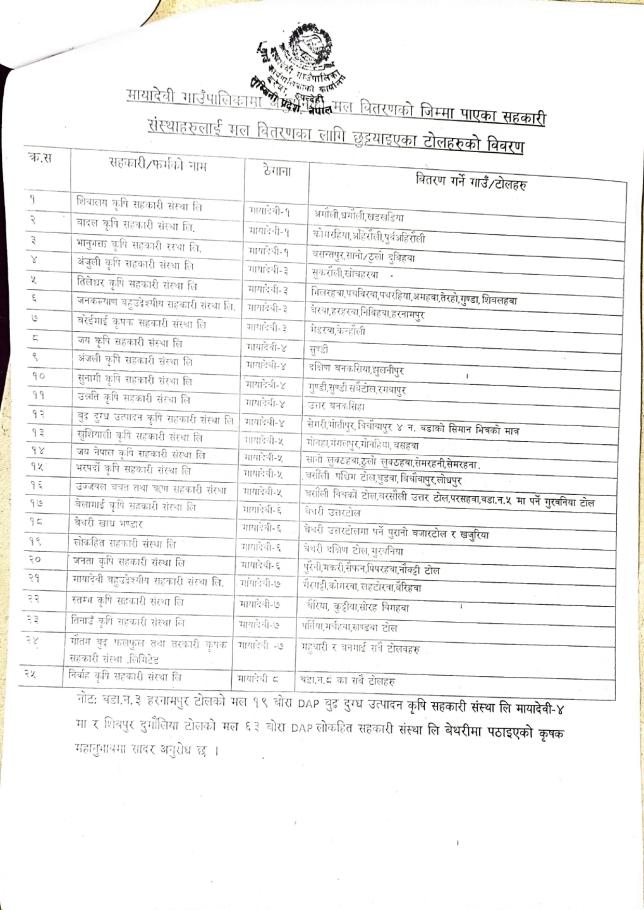 मायादेवी गाउँपालिका
गाउँ कार्यपालिकाको कार्यालय
रुपन्देही
लुम्बिनी प्रदेश, नेपाल
मायादेवी गाउँपालिकामा मल वितरणको जिम्मा पाएका सहकारी
संस्थाहरुलाई मल वितरणका लागि छुट्याइएका टोलहरुको विवरण
क्र.स सहकारी/फर्मको नाम ठेगाना वितरण गर्ने गाउँ/टोलहरु
१ शिवालय कृषि सहकारी संस्था लि मायादेवी-१ अमौली,धमौली,खडखडिया
२ बादल कृषि सहकारी संस्था लि. मायादेवी-१ कोमरहिया,अहिरौली,पुर्वअहिरौली
३ भानुभक्त कृषि सहकारी संस्था लि. मायादेवी-१ बसन्तपुर,सानो/ठुलो दुबिहवा
४ अंजुली कृषि सहकारी संस्था लि मायादेवी-३ सुकरौली,खोचहरवा
५ तिलेश्वर कृषि सहकारी संस्था लि मायादेवी-३ भिलरहवा,पचबिरवा,पथरहिया,अमहवा,तेरहो,गुण्डा,शिवलहवा
६ जनकल्याण बहुउद्देश्यीय सहकारी संस्था लि. मायादेवी-३ घेरवा,हरहरवा,निबिहवा,हरनामपुर
७ बरेईमाई कृषक सहकारी संस्था लि मायादेवी-३ मेडरवा,केन्हौली
८ जय कृषि सहकारी संस्था लि मायादेवी-४ सुण्डी
९ अंजली कृषि सहकारी संस्था लि मायादेवी-४ दक्षिण बनकसिया,झुलनीपुर
१० सुनागी कृषि सहकारी संस्था लि मायादेवी-४ गुण्डी,सुण्डी सबैटोल,रमवापुर
११ उन्नति कृषि सहकारी संस्था लि मायादेवी-४ उत्तर बनकसिहा
१२ बुद्ध दुग्ध उत्पादन कृषि सहकारी संस्था लि मायादेवी-४ सेमरी,मोतीपुर,बिचौवापुर ४ न. वडाको सिमान भित्रको मात्र
१३ खुशियाली कृषि सहकारी संस्था लि मायादेवी-५ गोनहा,मंगलपुर,गोनहिया,बसहवा
१४ जय नेपाल कृषि सहकारी संस्था लि मायादेवी-५ सानो लुक्ठहवा,ठुलो लुक्ठहवा,सेमरहनी,सेमरहना.
१५ भरपर्दो कृषि सहकारी संस्था लि मायादेवी-५ बर्सौली पश्चिम टोल,चुडवा,बिचौवापुर,लोधपुर
१६ उज्जवल बचत तथा ऋण सहकारी संस्था मायादेवी-५ बर्सौली बिचको टोल,वरसौली उत्तर टोल,परसहवा,वडा.न.५ मा पर्ने गुरबनिया टोल
१७ बेलामाई कृषि सहकारी संस्था लि मायादेवी-६ बेथरी उत्तरटोल
१८ बेथरी खाद्य भण्डार मायादेवी-६ बेथरी उत्तरटोलमा पर्ने पुरानो बजारटोल र खजुरिया
१९ लोकहित सहकारी संस्था लि मायादेवी-६ बेथरी दक्षिण टोल,गुरबनिया
२० जनता कृषि सहकारी संस्था लि मायादेवी-६ पुरैनी,मकरी,सेफन,पिपरहवा,नौक्ट्टी टोल
२१ मायादेवी बहुउद्देश्यीय सहकारी संस्था लि. मायादेवी-७ गैरगट्टी,कोमरवा,सहटोरवा,बैरिहवा
२२ स्तम्भ कृषि सहकारी संस्था लि मायादेवी-७ धैरिया, कुट्टीया,सोरह बिगहवा
२३ तिनाउँ कृषि सहकारी संस्था लि मायादेवी-७ पर्तिया,मर्चहवा,खाण्डवा टोल
२४ गौतम बुद्ध फलफुल तथा तरकारी कृषक मायादेवी -७ महुवारी र बनमाई सबै टोलवहरु
सहकारी संस्था .लिमिटेड
२५ निर्वाह कृषि सहकारी संस्था लि मायादेवी ८ वडा.न.८ का सबै टोलहरु
नोट: वडा.न.३ हरनामपुर टोलको मल १९ बोरा DAP बुद्ध दुग्ध उत्पादन कृषि सहकारी संस्था लि मायादेवी-४
मा र शिवपुर दुमौलिया टोलको मल ६३ बोरा DAP लोकहित सहकारी संस्था लि बेथरीमा पठाइएको कृषक
महानुभावमा सादर अनुरोध छ ।